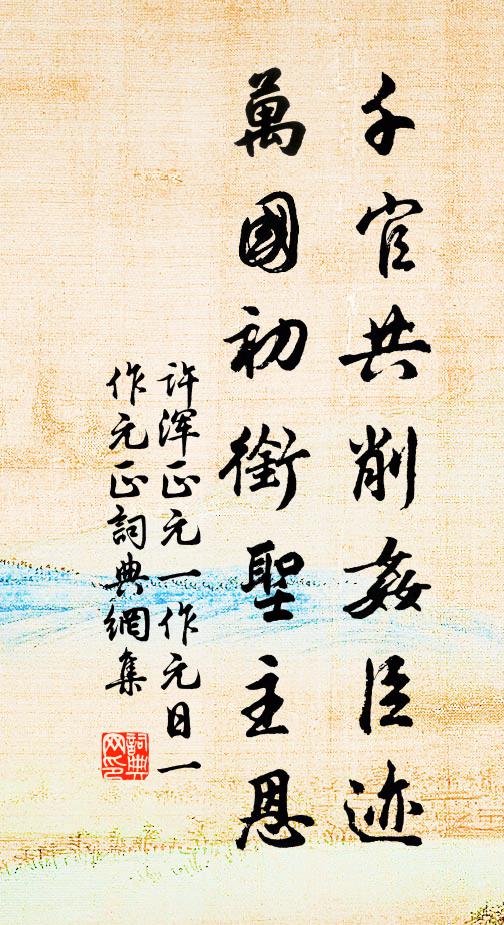 千官共削姦臣迹
萬國初銜聖主恩
许浑正元一作元日一
作元正詞典網集
詞典網印